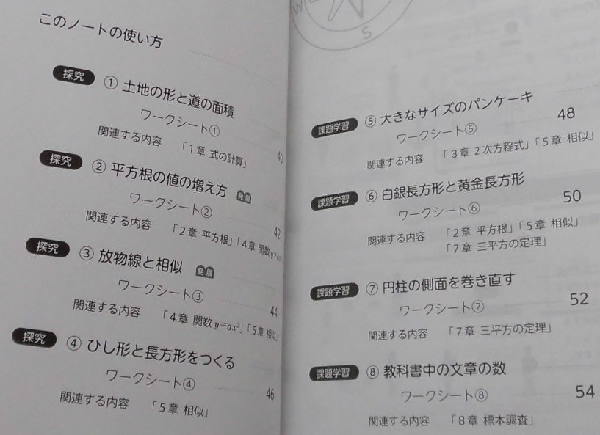 このノートの使い方
探究 ① 土地の形と道の面積
ワークシート①
関連する内容 「1章 式の計算」
探究 ② 平方根の値の増え方 発展
ワークシート②
42
関連する内容 「2章 平方根」「4章 関数
探究 ③ 放物線と相似 発展
ワークシート③
44
関連する内容 「4章 関数y=ax²」「5章 相似」
探究 ④ ひし形と長方形をつくる
ワークシート④
46
関連する内容 「5章 相似」
S
課題学習 ⑤ 大きなサイズのパンケーキ
ワークシート⑤ 48
関連する内容 「3章 2次方程式」「5章 相似」
課題学習 ⑥ 白銀長方形と黄金長方形
ワークシート⑥ 50
関連する内容 「2章 平方根」「5章 相似」
「7章 三平方の定理」
課題学習 ⑦ 円柱の側面を巻き直す
ワークシート⑦ 52
関連する内容 「7章 三平方の定理」
課題学習 ⑧ 教科書中の文章の数
ワークシート⑧ 54
関連する内容 「8章 標本調査」